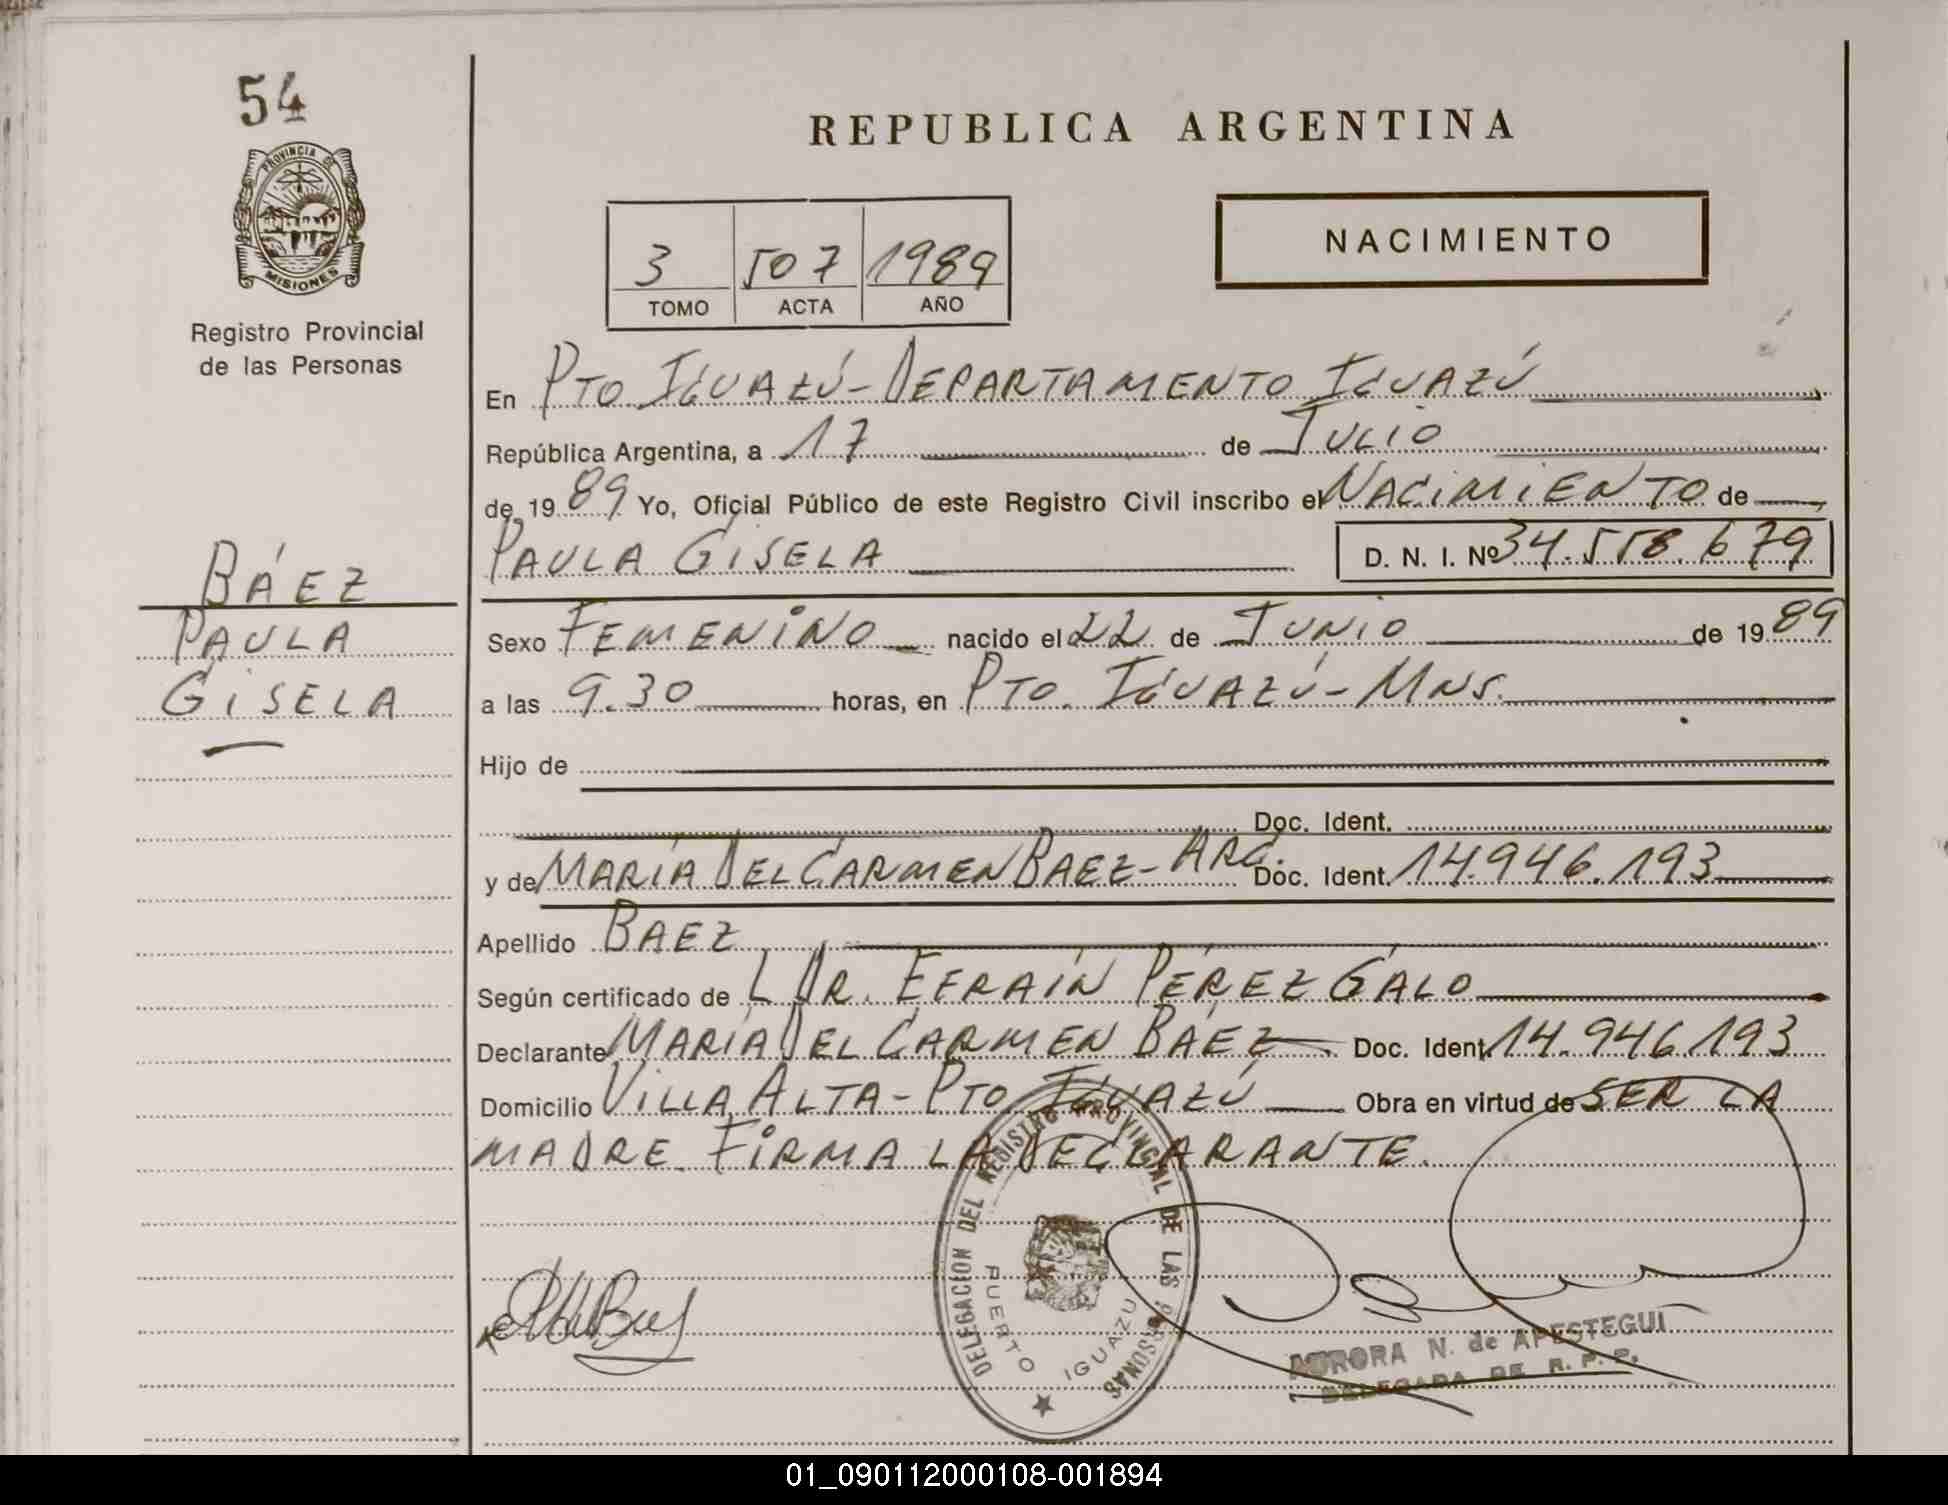 54
PROVINCIA DE
MISIONES
Registro Provincial
de las Personas
REPUBLICA ARGENTINA
NACIMIENTO
3 507 1989
TOMO ACTA AÑO
En PTO IGUAZÚ - DEPARTAMENTO IGUAZÚ
República Argentina, a 17 de JULIO
de 19 89 Yo, Oficial Público de este Registro Civil inscribo el NACIMIENTO de
PAULA GISELA D. N. I. Nº 34.558.679
BÁEZ
PAULA
GISELA
Sexo FEMENINO nacido el 22 de JUNIO de 19 89
a las 9.30 horas, en PTO. IGUAZÚ - MNS.
Hijo de
Doc. Ident.
y de MARÍA DEL CARMEN BAEZ - ARG. Doc. Ident. 14.946.193
Apellido BAEZ
Según certificado de L DR. EFRAÍN PÉREZ GALO
Declarante MARÍA DEL CARMEN BÁEZ Doc. Ident. 14.946.193
Domicilio VILLA ALTA - PTO IGUAZÚ Obra en virtud de SER LA
MADRE. FIRMA LA DECLARANTE.
DELEGACION DEL REGISTRO PROVINCIAL DE LAS PERSONAS
PUERTO IGUAZU
AURORA N. de APESTEGUI
DELEGADA DE R. P. P.
01_090112000108-001894